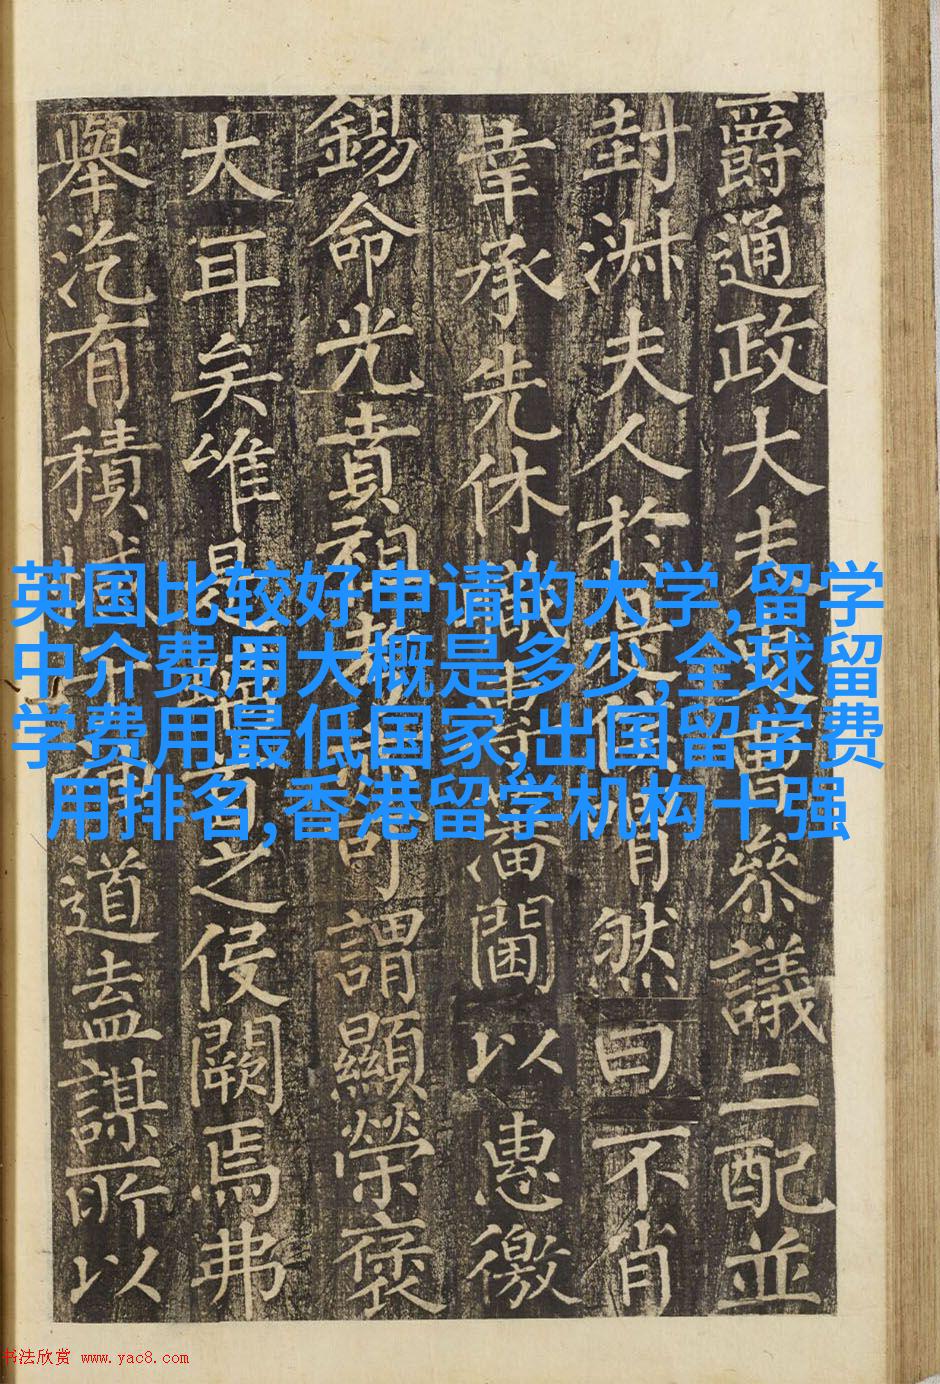 爵通政大夫參議二配並
封淑夫人於是然曰不肖
幸承先休藩閫以惠徼
錫命光賁祖考可謂顯榮褒
大耳矣唯是之侵闕焉弗
舉汔有積道去益謀所以
英国比较好申请的大学,留学
中介费用大概是多少,全球留
学费用最低国家,出国留学费
用排名,香港留学机构十强
书法欣赏 www.yac8.com